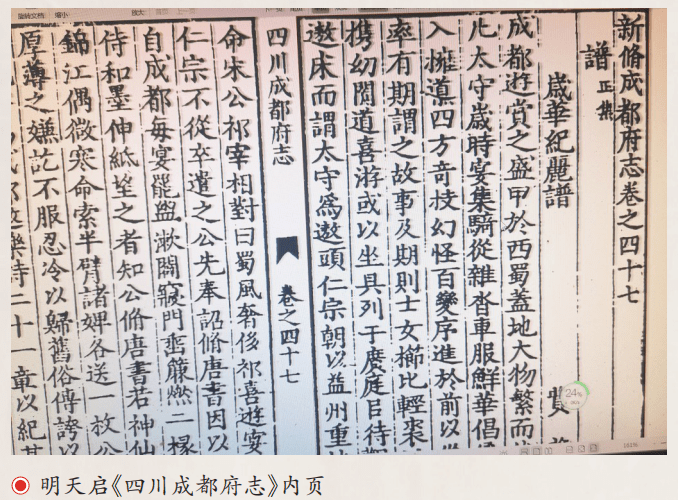 新脩成都府志卷之四十七
譜 正集
歲華紀麗譜 費
成都遊賞之盛甲於西蜀蓋地大物繁而
凡太守歲時宴集騎從雜沓車服鮮華倡
入擁導四方奇技幻怪百變序進於前以
率有期謂之故事及期則士女櫛比輕裘
携幼闐道嬉游或以坐具列于廣庭以待
遨床而謂太守為遨頭仁宗朝以益州重
四川成都府志 卷之四十七
命宋公祁宰相對曰蜀風奢侈祁喜遊宴
仁宗不從卒遣之公先奉詔脩唐書因以
自成都每宴罷盥漱闢寢門垂簾燃二椽
侍和墨伸紙望之者知公脩唐書若神仙
錦江偶微寒命索半臂諸婢各送一枚公
厚薄之嫌訖不服忍冷以歸舊俗傳誇以
樂詩二十一章以紀其
明天启《四川成都府志》内页
24%